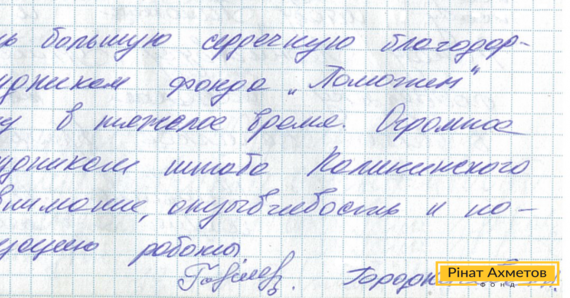 ь большую сердечную благодар-
удникам фонда „Поможем"
у в тяжелое время. Огромное
удникам штаба Калининского
внимание, отзывчивость и по-
работы
Рінат Ахметов
Фонд